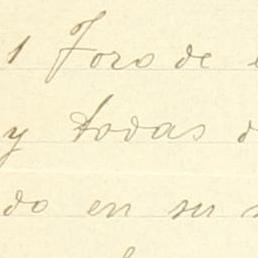 1 Foro de
y todas d
do en su s